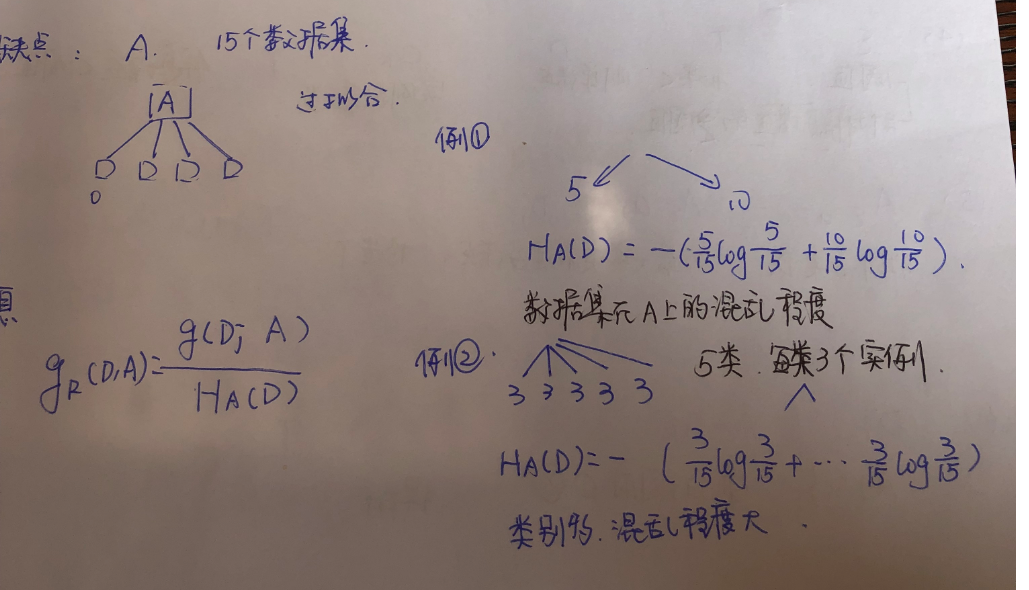 缺点: A. 15个数据集.
[A] 过于拟合.
D D D D
0
例①
5 10
H_A(D) = -(5/15 log 5/15 + 10/15 log 10/15).
数据集在A上的混乱程度
g_R(D,A) = g(D; A) / H_A(D)
例②. 5类. 每类3个实例.
3 3 3 3 3
H_A(D) = - (3/15 log 3/15 + ... 3/15 log 3/15)
类别多. 混乱程度大.